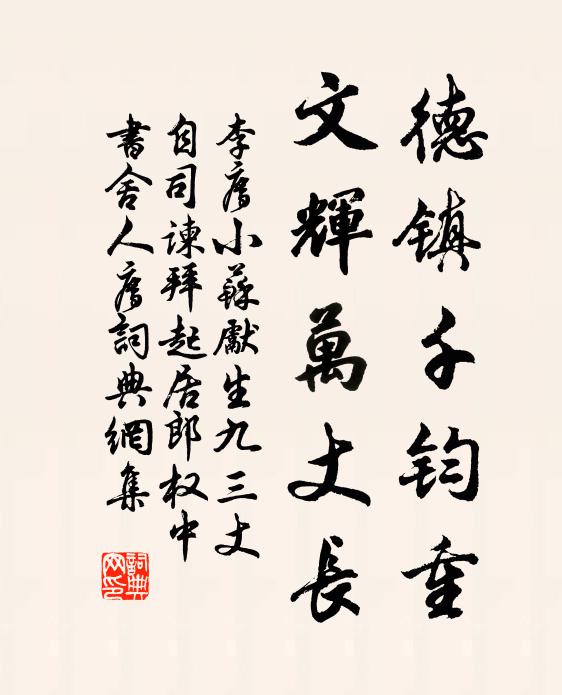 德镇千钧重
文輝萬丈長
李廌小蘇獻生九三丈
自司諫拜起居郎权中
書舍人廌詞典網集
詞典
网印